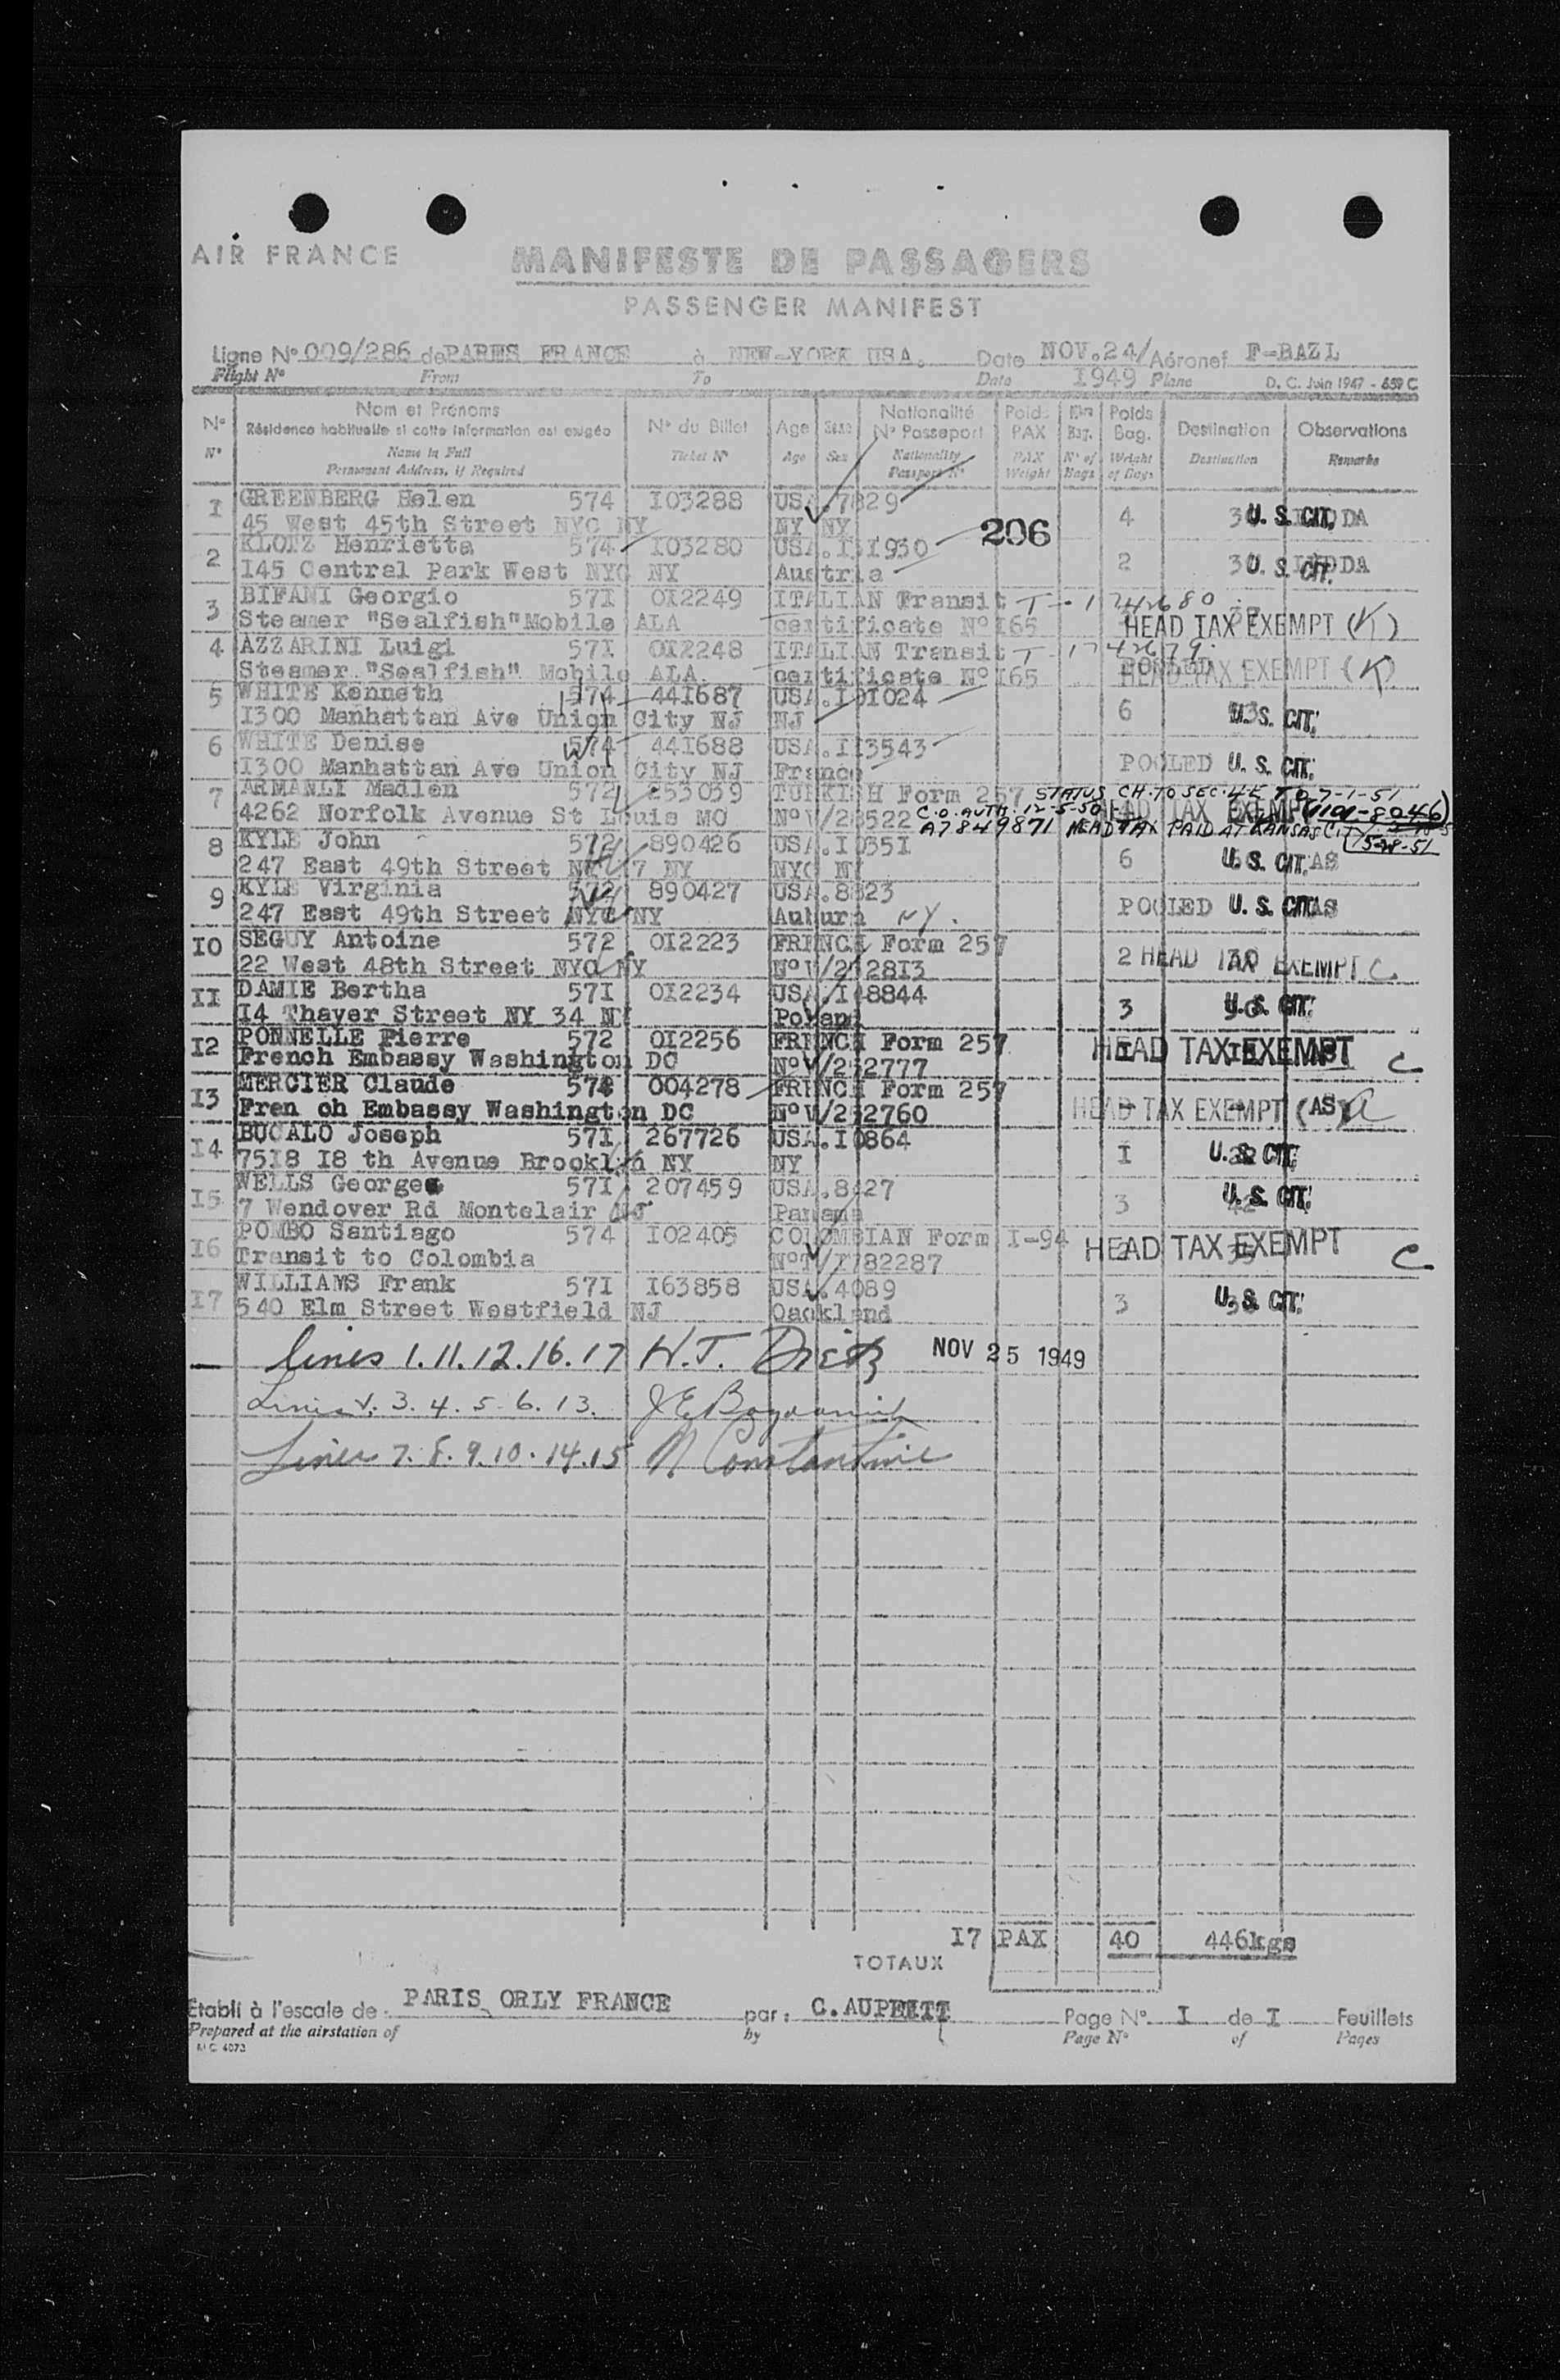 AIR FRANCE
MANIFESTE DE PASSAGERS
PASSENGER MANIFEST
Ligne Nº 009/286 de PARIS FRANCE à NEW-YORK USA. Date NOV.24/ Aéronef F-BAZL
Flight Nº From To Date 1949 Plane D. C. Juin 1947 - 859 C
Nº Nom et Prénoms Nº du Billet Age Sexe Nationalité Poids Nbre Poids Destination Observations
Résidence habituelle si cette information est exigée Nº Passeport PAX Bag. Bag.
Nº Name in Full Ticket Nº Age Sex Nationality PAX Nº of Weight Destination Remarks
Permanent Address, if Required Passport Nº Weight Bags of Bags
I GREENBERG Helen 574 I03288 USA.7829
45 West 45th Street NYC NY NY NY 206 4 U. S. CIT. DA
2 KLOTZ Henrietta 574 I03280 USA.I5I930
I45 Central Park West NYC NY Austria 2 U. S. CIT. DA
3 BIFANI Georgio 57I OI2249 ITALIAN Transit T-1742680
Steamer "Sealfish" Mobile ALA certificate Nº I65 HEAD TAX EXEMPT (K)
4 AZZARINI Luigi 57I OI2248 ITALIAN Transit T-1742679.
Steamer "Sealfish" Mobile ALA. certificate Nº I65 HEAD TAX EXEMPT (K)
5 WHITE Kenneth 574 44I687 USA.I0I024
I300 Manhattan Ave Union City NJ NJ 6 U. S. CIT.
6 WHITE Denise 574 44I688 USA.II3543
I300 Manhattan Ave Union City NJ France POOLED U. S. CIT.
7 ARMANLI Madlen 572 253059 TURKISH Form 257 STATUS CH. TO SEC. 4E TO 7-1-51
4262 Norfolk Avenue St Louis MO Nº V/28522 C.O. AUTH. 12-5-50 HEAD TAX EXEMPT (0101-8046)
A7849871 HEAD TAX PAID AT KANSAS CITY 5-28-51
8 KYLE John 572 890426 USA.I035I
247 East 49th Street NYC I7 NY NYC NY 6 U. S. CIT. AS
9 KYLE Virginia 572 890427 USA.8823
247 East 49th Street NYC NY Auburn NY. POOLED U. S. CIT. AS
IO SEGUY Antoine 572 OI2223 FRENCH Form 257
22 West 48th Street NYC NY Nº V/2528I3 2 HEAD TAX EXEMPT C
II DAMIE Bertha 57I OI2234 USA.I48844
I4 Thayer Street NY 34 NY Poland 3 U. S. CIT.
I2 PONNELLE Pierre 572 OI2256 FRENCH Form 257
French Embassy Washington DC Nº V/252777 HEAD TAX EXEMPT C
I3 MERCIER Claude 574 004278 FRENCH Form 257
Fren ch Embassy Washington DC Nº V/252760 HEAD TAX EXEMPT (AS) a
I4 BUCALO Joseph 57I 267726 USA.I0864
75I8 I8 th Avenue Brooklyn NY NY I U. S. CIT.
I5 WELLS George 57I 207459 USA.8427
7 Wendover Rd Montclair NJ Panama 3 U. S. CIT.
I6 POMBO Santiago 574 I02405 COLOMBIAN Form I-94
Transit to Colombia Nº T/I782287 HEAD TAX EXEMPT C
I7 WILLIAMS Frank 57I I63858 USA.4089
540 Elm Street Westfield NJ Oackland 3 U. S. CIT.
lines 1. 11. 12. 16. 17 H.T. Dietz NOV 25 1949
Lines 3. 4. 5. 6. 13.
Lines 7. 8. 9. 10. 14. 15 N Constantine
I7 PAX 40 446kgs
TOTAUX
Etabli à l'escale de: PARIS ORLY FRANCE par: C. AUPETIT Page Nº I de I Feuillets
Prepared at the airstation of by Page Nº of Pages
M C 4073